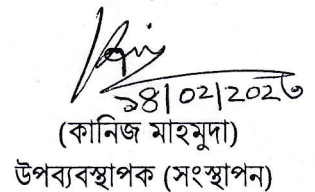 ১৪|০২|২০২৩
(কানিজ মাহমুদা)
উপব্যবস্থাপক (সংস্থাপন)